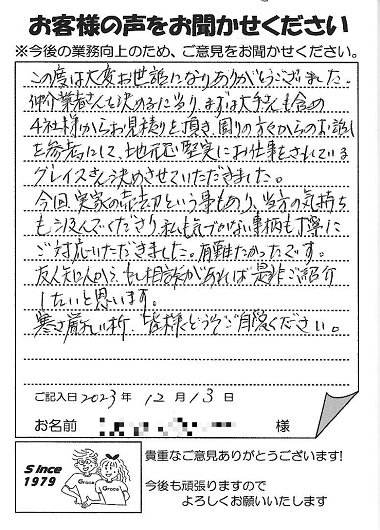 お客様の声をお聞かせください
※今後の業務向上のため、ご意見をお聞かせください。
この度は大変お世話になりありがとうございました。
仲介業者さんを決めるに当り、まずは大手さんも含め
4社様からお見積りを頂き、周りの方々からのお話し
を参考にして、地元で堅実にお仕事をされている
グレイスさんに決めさせていただきました。
今回、実家の売却という事もあり、当方の気持ち
も汲んでくださり、私も気づかない事柄も丁寧に
ご対応いただきました。有難たかったです。
友人知人から、もし相談があれば是非ご紹介
したいと思います。
寒さ厳しい折、皆様どうぞご自愛ください。
ご記入日 2023年 12月 13日
お名前 様
Since
1979
Grace
Grace
貴重なご意見ありがとうございます!
今後も頑張りますので
よろしくお願いいたします